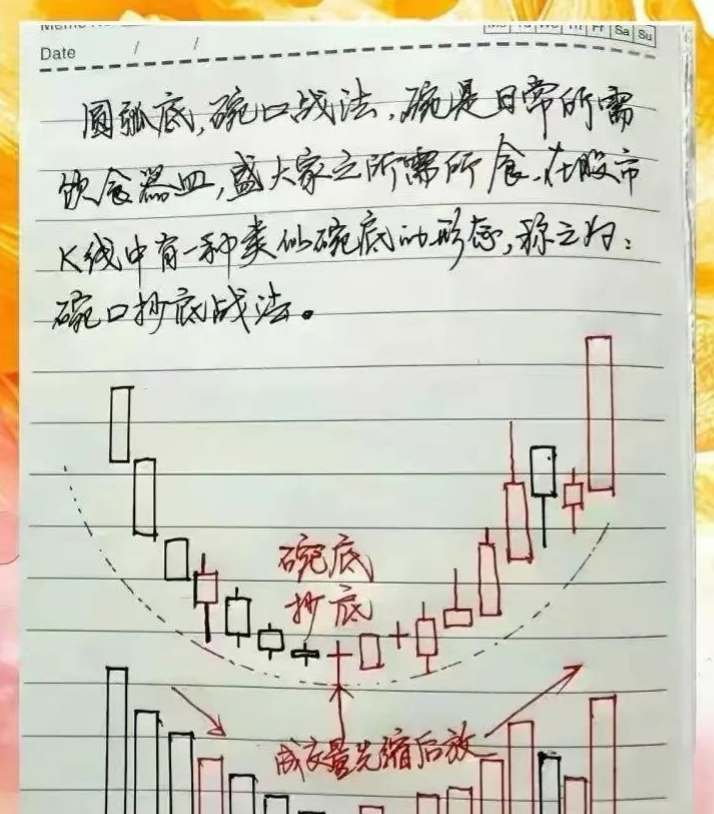 Date / /
Sa Su
圆弧底,碗口战法,碗是日常所需
饮食器皿,盛大家之所需所食.在股市
K线中有一种类似碗底的形态,称之为:
碗口抄底战法。
碗底
抄底
成交量先缩后放